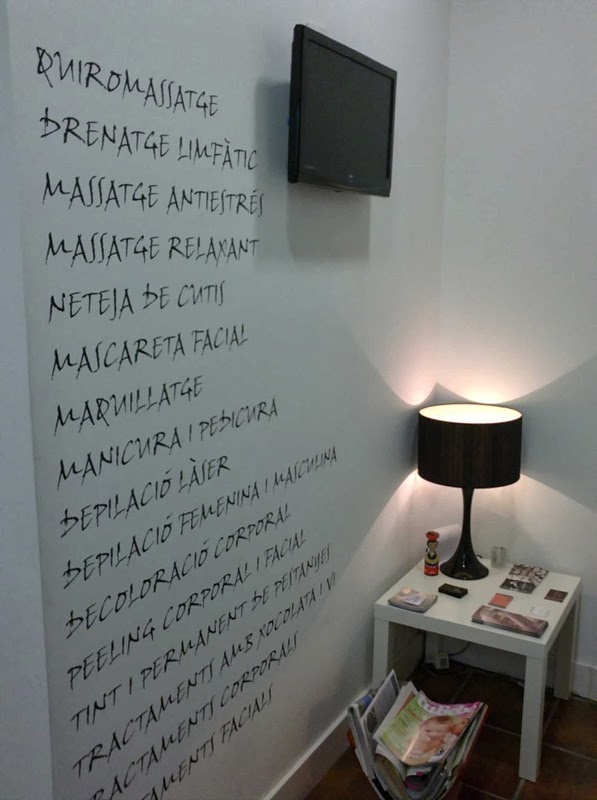 QUIROMASSATGE
DRENATGE LIMFÀTIC
MASSATGE ANTIESTRÉS
MASSATGE RELAXANT
NETEJA DE CUTIS
MASCARETA FACIAL
MAQUILLATGE
MANICURA I PEDICURA
DEPILACIÓ LÀSER
DEPILACIÓ FEMENINA I MASCULINA
DECOLORACIÓ CORPORAL
PEELING CORPORAL I FACIAL
TINT I PERMANENT DE PESTANYES
TRACTAMENTS AMB XOCOLATA I VI
RACTAMENTS CORPORALS
AMENTS FACIALS